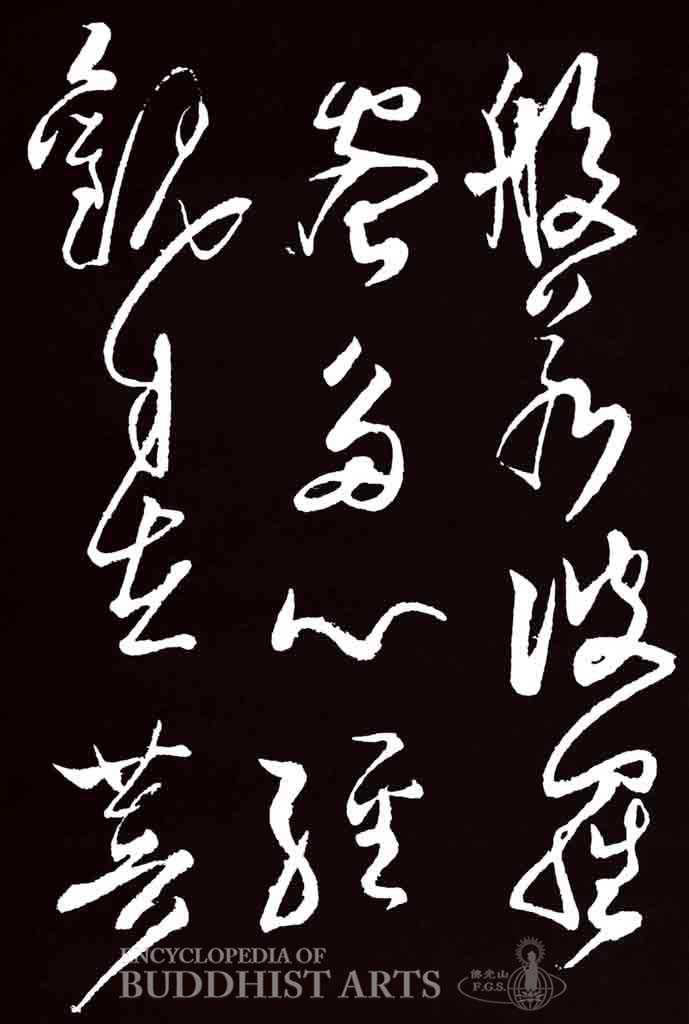 般若波羅
蜜多心經
觀自在菩
ENCYCLOPEDIA OF
BUDDHIST ARTS
佛光山
F.G.S.